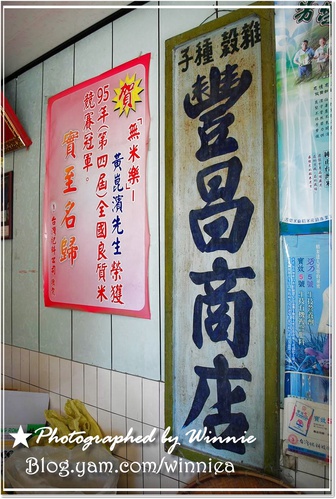 雜穀種子
豐昌商店
賀
「無米樂」—
黃崑濱先生榮獲
95年(第四屆)全國良質米
競賽冠軍。
實至名歸
★Photographed by Winnie
Blog.yam.com/winniea